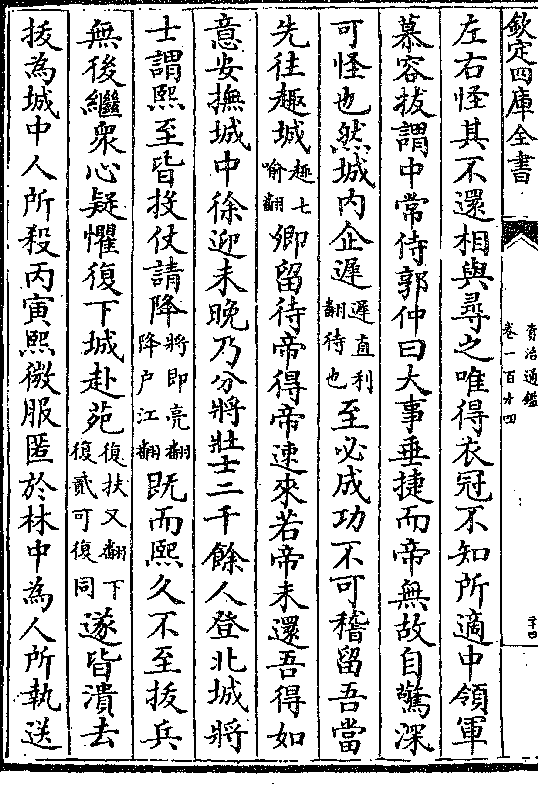 欽定四庫全書
資治通鑑
卷一百十四
左右怪其不還相與尋之唯得衣冠不知所適中領軍
慕容拔謂中常侍郭仲曰大事垂捷而帝無故自驚深
可怪也然城内企遲遲直利翻待也至必成功不可稽留吾當
先往趣城趣七喻翻卿留待帝得帝速來若帝未還吾得如
意安撫城中徐迎未晚乃分將壯士二千餘人登北城將
士謂熙至皆投仗請降將即亮翻降户江翻既而熙久不至拔兵
無後繼衆心疑懼復下城赴苑復扶又翻下復貳可復同遂皆潰去
拔為城中人所殺丙寅熙微服匿於林中為人所執送